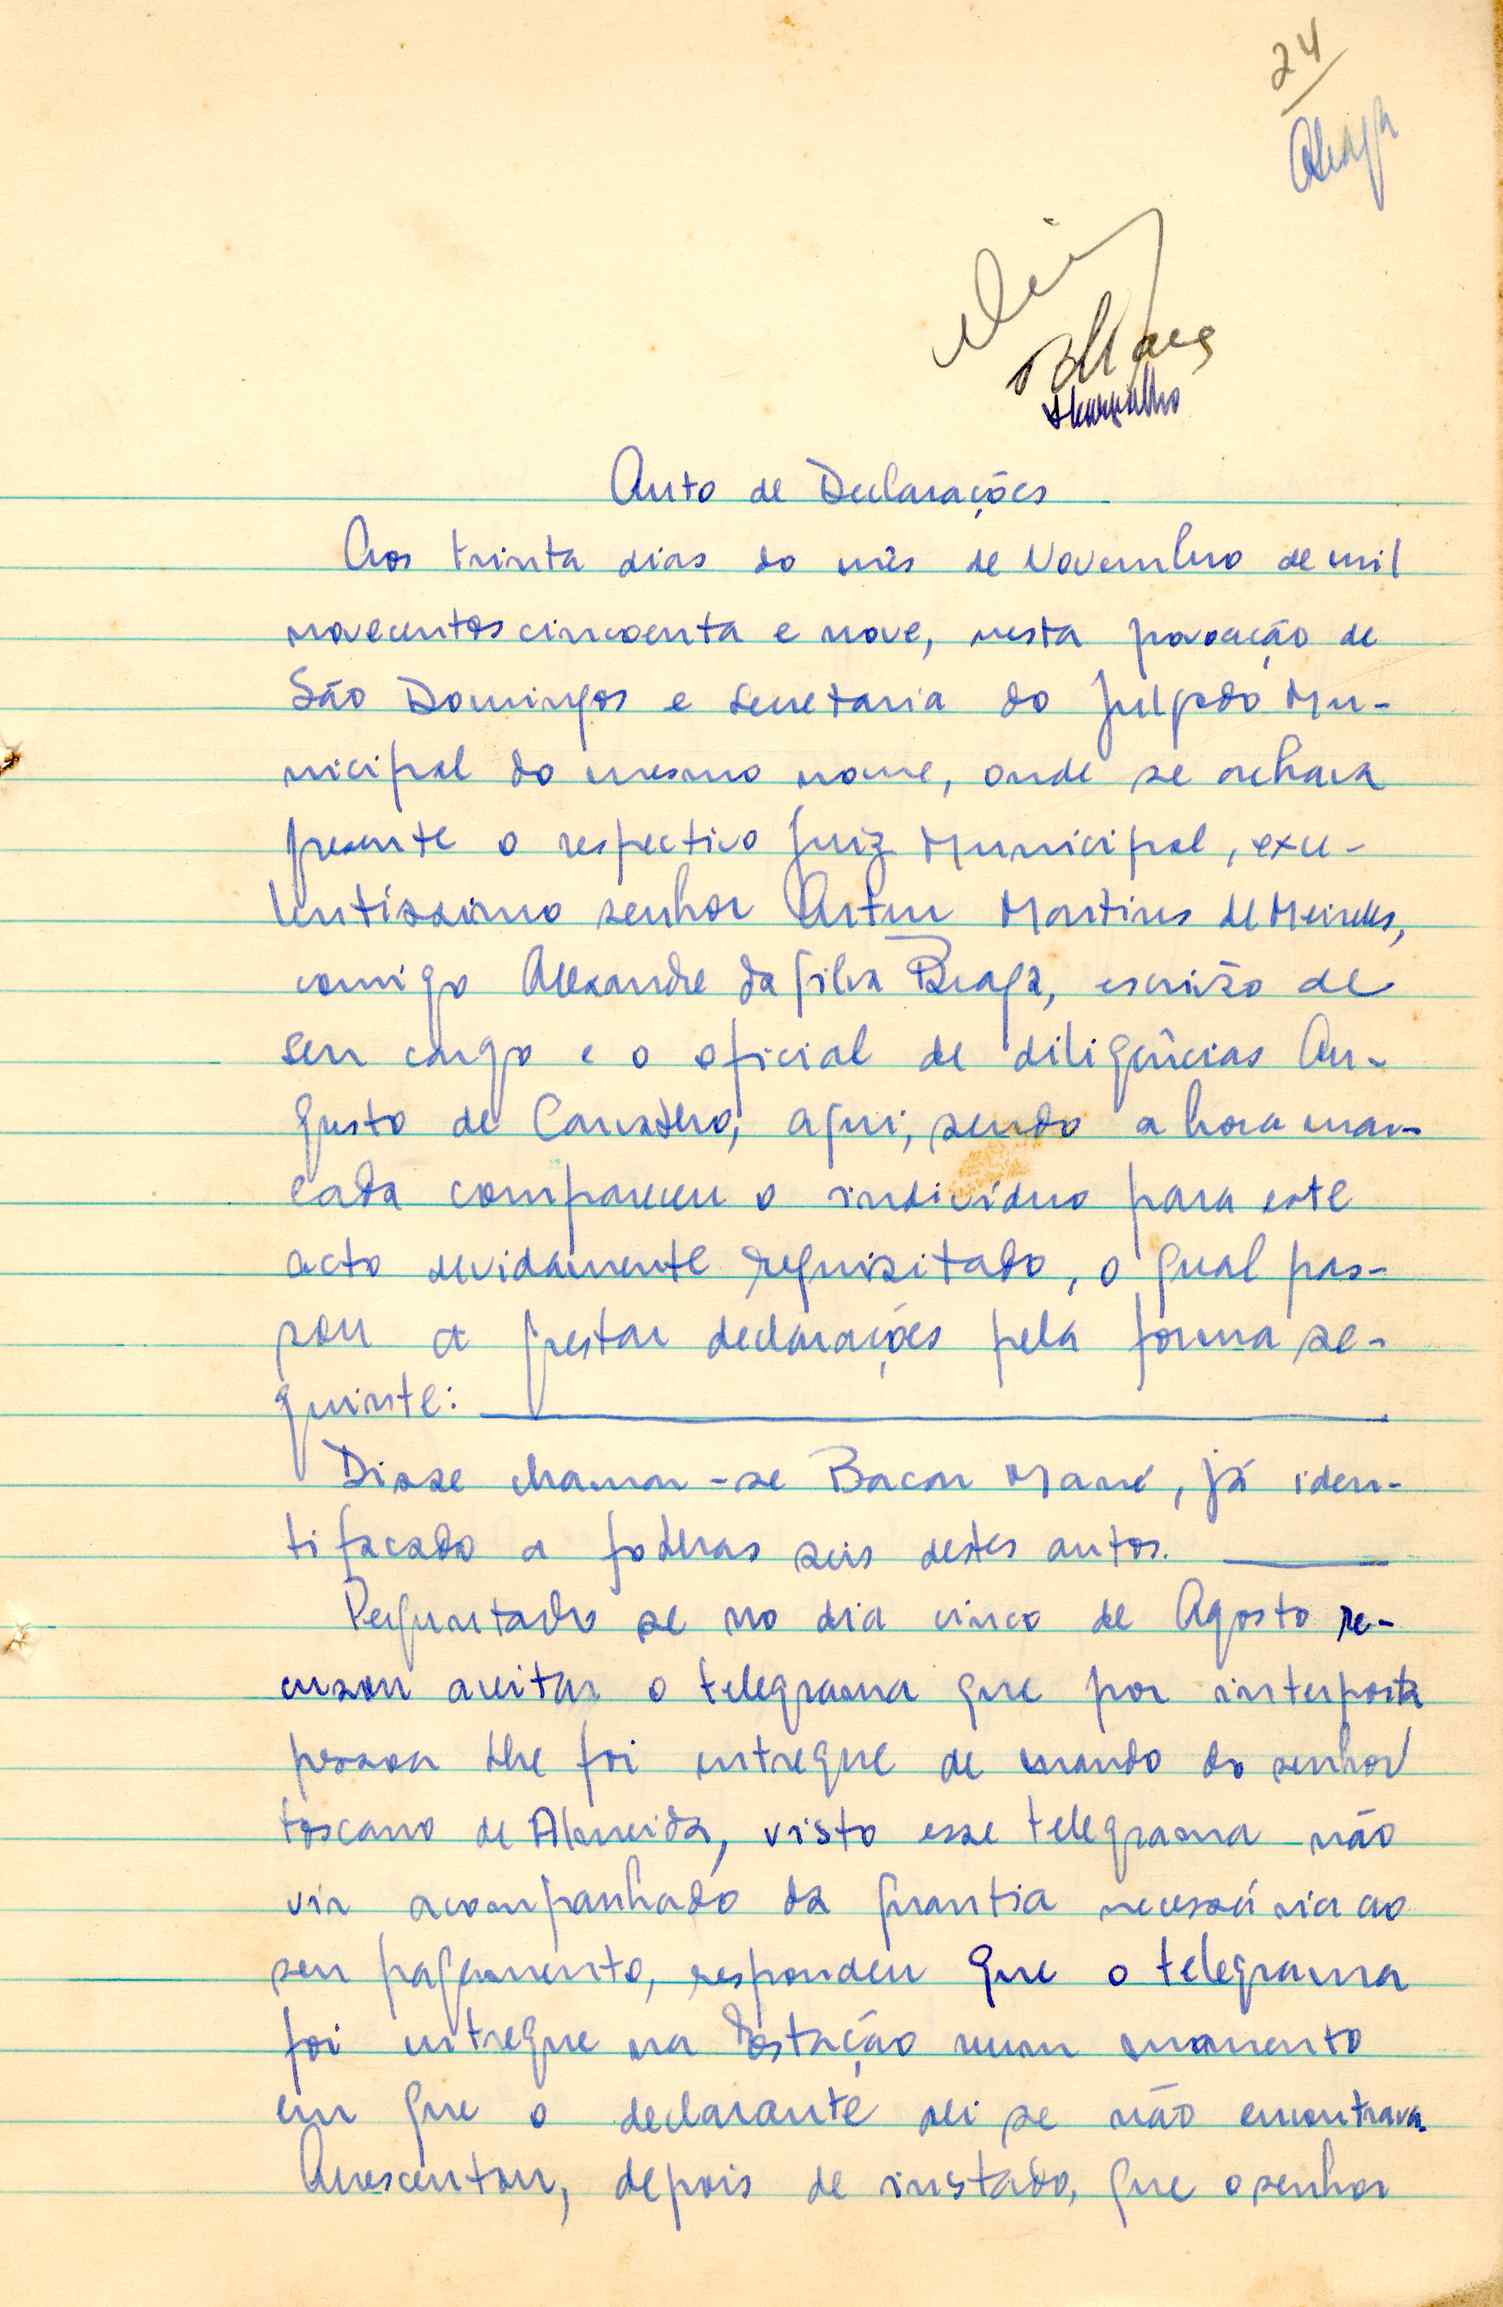 24
Braga
Auto de Declarações
Aos trinta dias do mês de Novembro de mil
novecentos cincoenta e nove, nesta povoação de
São Domingos e secretaria do Julgado Mu-
nicipal do mesmo nome, onde se achava
presente o respectivo Juiz Municipal, exce-
lentíssimo senhor Artur Martins de Meireles,
comigo Alexandre da Silva Braga, escrivão de
seu cargo e o oficial de diligências Au-
gusto de Carvalho, aqui, sendo a hora mar-
cada compareceu o indivíduo para este
acto devidamente requisitado, o qual pas-
sou a prestar declarações pela forma se-
guinte:
Disse chamar-se Bacar Mané, já iden-
tifacado a folhas seis destes autos.
Perguntado se no dia cinco de Agosto re-
cusou aceitar o telegrama que por interposta
pessoa lhe foi entregue de mando do senhor
Toscano de Almeida, visto esse telegrama não
vir acompanhado da quantia necessária ao
seu pagamento, respondeu que o telegrama
foi entregue na Estação num momento
em que o declarante ali se não encontrava.
Acrescentou, depois de instado, que o senhor